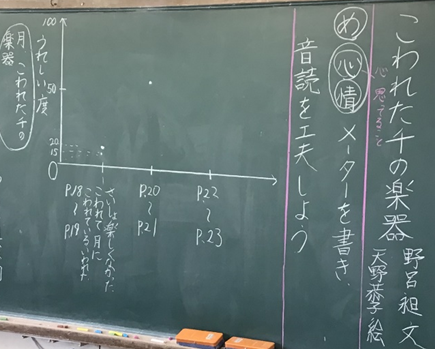 こわれた千の楽器
野呂昶 文
天野恭子 絵
心 思うこと
め 心情メーターを書き、
音読を工夫しよう
100
うれしい度
50
20
15
0
P.18〜P.19
さいしょ楽しくなかった
こわれて月に
こわれているいわれた
P.20〜P.21
P.22〜P.23
月 こわれた千の
楽器